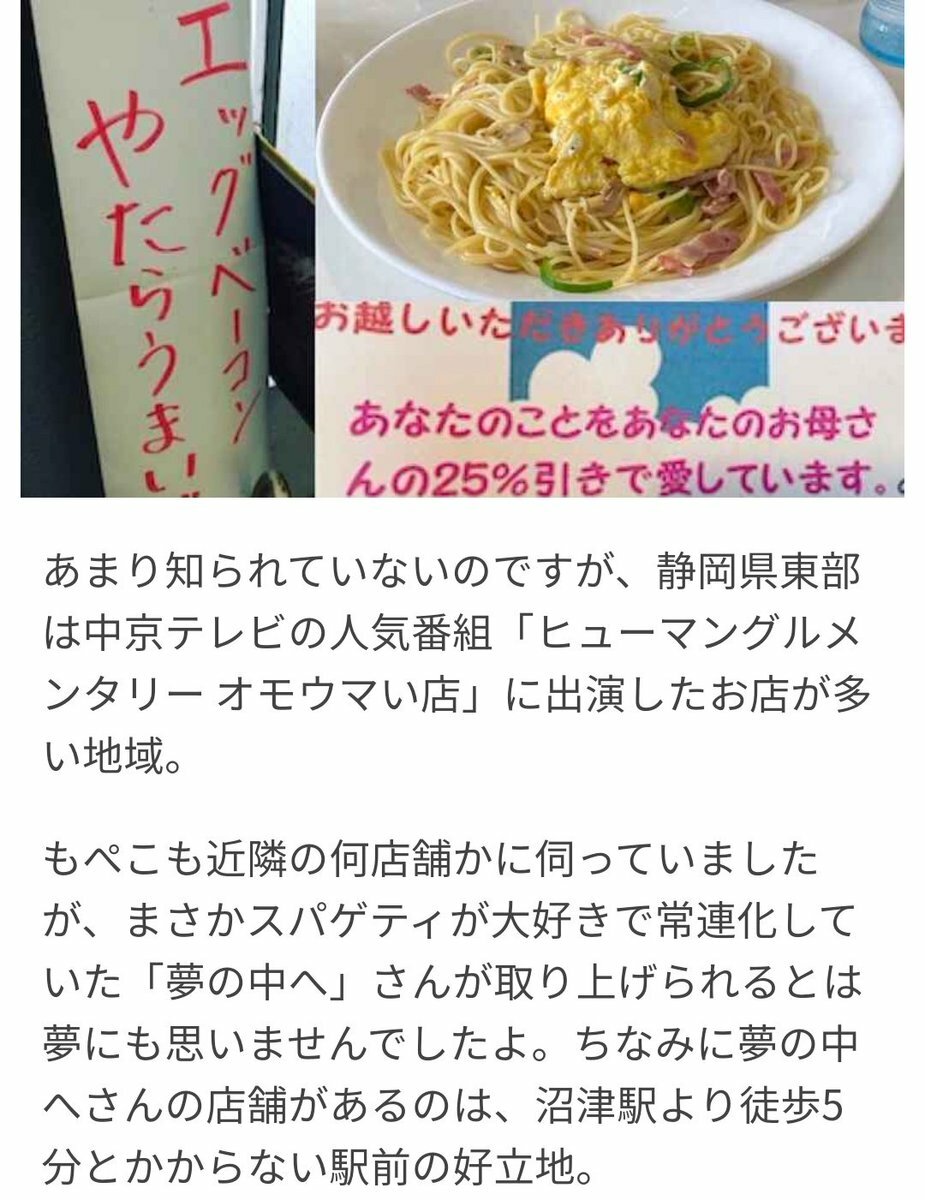 エッグベーコン
やたらうまい
お越しいただきありがとうございま
あなたのことをあなたのお母さ
んの25%引きで愛しています。
あまり知られていないのですが、静岡県東部
は中京テレビの人気番組「ヒューマングルメ
ンタリー オモウマい店」に出演したお店が多
い地域。
もぺこも近隣の何店舗かに伺っていました
が、まさかスパゲティが大好きで常連化して
いた「夢の中へ」さんが取り上げられるとは
夢にも思いませんでしたよ。ちなみに夢の中
へさんの店舗があるのは、沼津駅より徒歩5
分とかからない駅前の好立地。